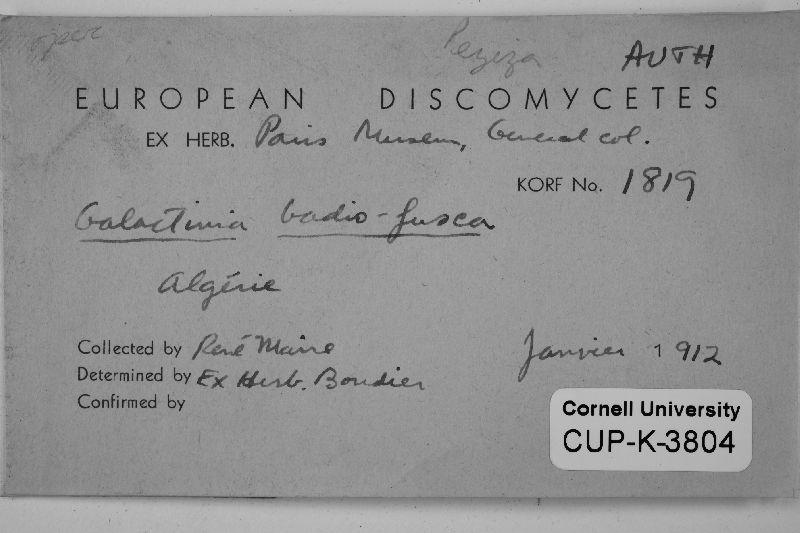 Peziza AUTH
EUROPEAN DISCOMYCETES
EX HERB. Paris Museum, General col.
KORF No. 1819
Galactinia badio-fusca
Algérie
Collected by René Maire Janvier 1912
Determined by Ex Herb. Boudier
Confirmed by
Cornell University
CUP-K-3804